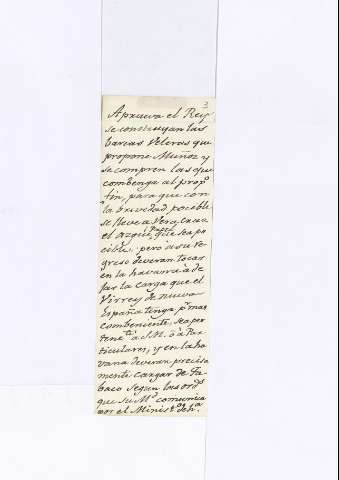 3
Aprueva el Rey
se construyan las
barcas veleras que
propone Muñoz y
se compren las que
combenga al propº
fin, para que con
la brevedad posible
se lleve a Vera cruz
el azogue que sea po
cible: pero a su re
greso deveran tocar
en la havana a de
jar la carga que el
Virrey de nueva
España tenga pr. mas
combeniente, sea per
tente. a S.M. ò à Par
ticulares, y en la ha
vana deveran precisa
mente cargar de ta
baco segun las ords.
que su Md. comunica
por el Ministº de hª.